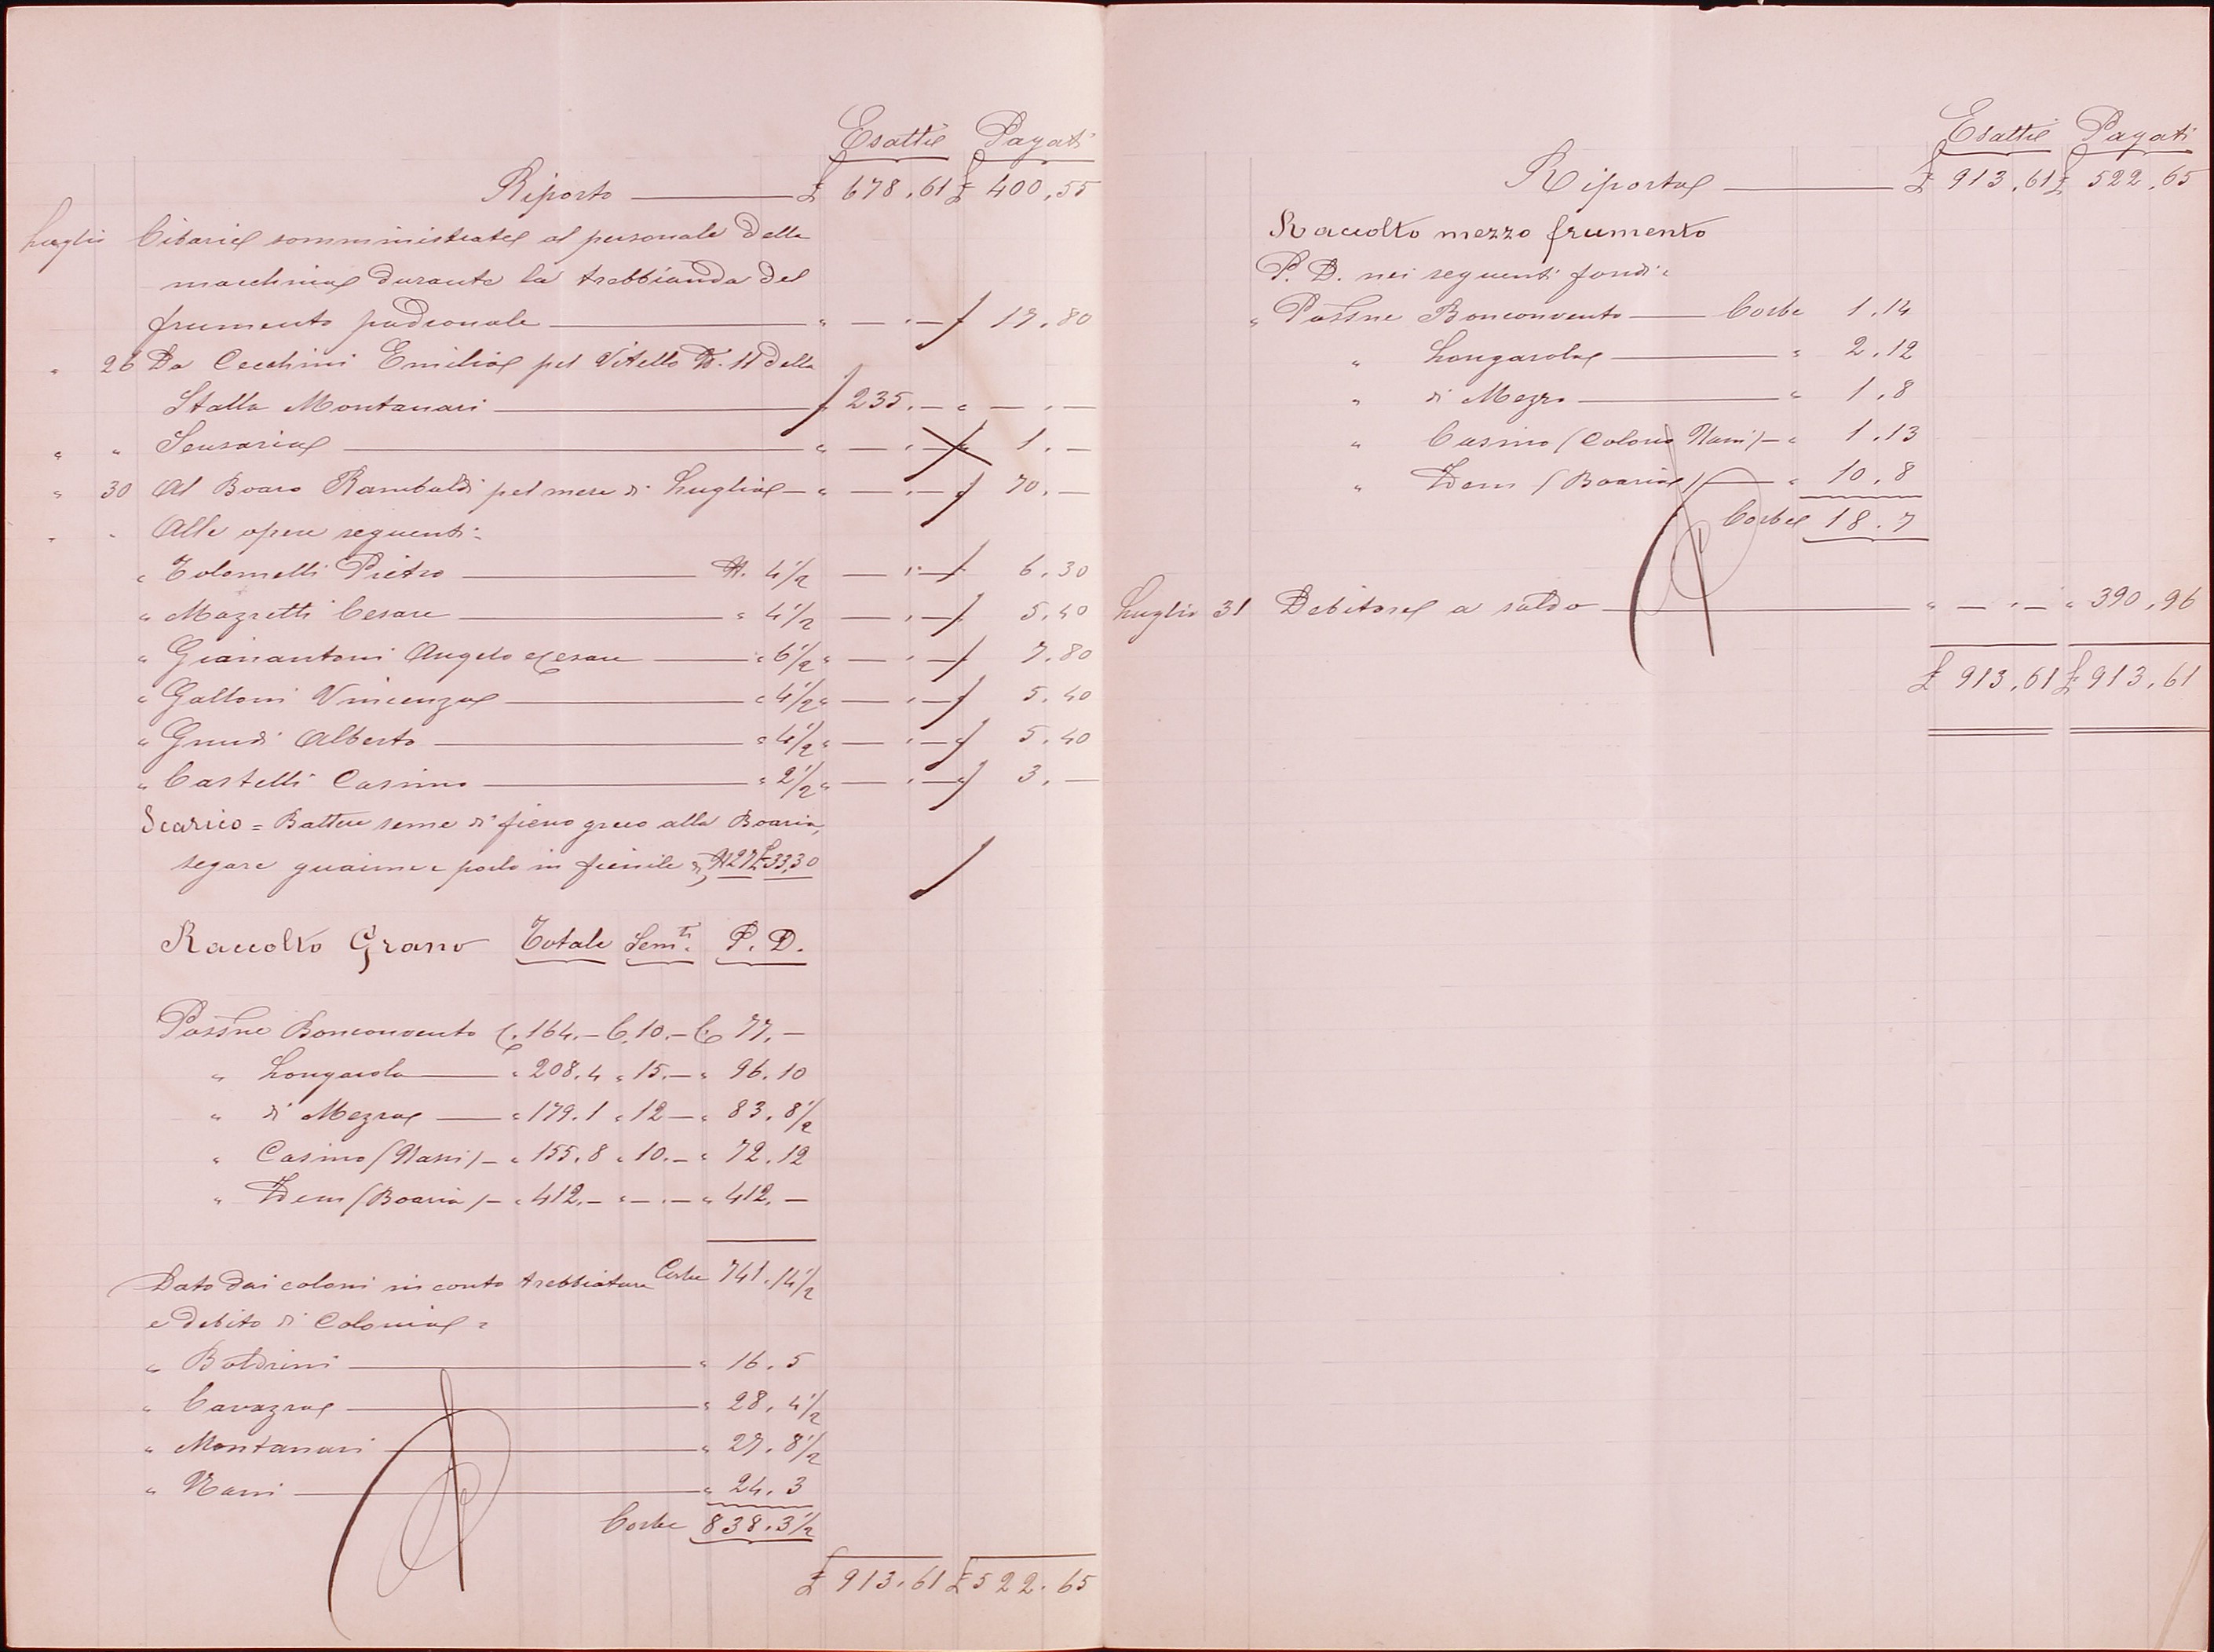 Esatti Pagati
Riporto £ 678.61 £ 400.55
Luglio Cibarie somministrate al personale della
macchina durante la trebbianda del
frumento padronale " — . — " 17.80
" 26 Da Cecchini Emilio pel Vitello N. 11 della
Stalla Montanari " 235. — " — . —
" " Senseria " — . — " 1. —
" 30 Al Boaro Rambaldi pel mese di Luglio " — . — " 70. —
" " Alle opere seguenti:
" Tolomelli Pietro N. 4 1/2 — . — 6.30
" Mazzetti Cesare " 4 1/2 — . — 5.40
" Gianantoni Angelo e Cesare " 6 1/2 " — . — 7.80
" Galloni Vincenzo " 4 1/2 " — . — 5.40
" Gnudi Alberto " 4 1/2 " — . — " 5.40
" Castelli Casimo " 2 1/2 " — . — " 3. —
Scarico = Battere seme di fieno greco alla Boaria,
segare guaime e porlo in fienile N 27 £ 33,30
Raccolto Grano Totale Semti. P. D.
Possne Bonconvento C. 164. — C. 10. — C. 77. —
" Longarola " 208.4 " 15. — " 96.10
" di Mezzo " 179.1 " 12 — " 83.8 1/2
" Casino (Nanni) — " 155.8 " 10. — " 72.12
" Idem (Boaria) — " 412. — " — . — " 412. —
Dato dai coloni in conto trebbiatura Corbe 741.14 1/2
e debito di Colonia =
" Boldrini " 16.5
" Cavazza " 28.4 1/2
" Montanari " 27.8 1/2
" Nanni " 24.3
Corbe 838.3 1/2
£ 913.61 £ 522.65
Esatti Pagati
Riporto £ 913.61 £ 522.65
Raccolto mezzo frumento
P. D. nei seguenti fondi:
" Possne Bonconvento Corbe 1.14
" Longarola " 2.12
" di Mezzo " 1.8
" Casino (Colono Nanni) — " 1.13
" Idem (Boaria) " 10.8
Corbe 18.7
Luglio 31 Debitore a saldo " — . — " 390.96
£ 913.61 £ 913.61